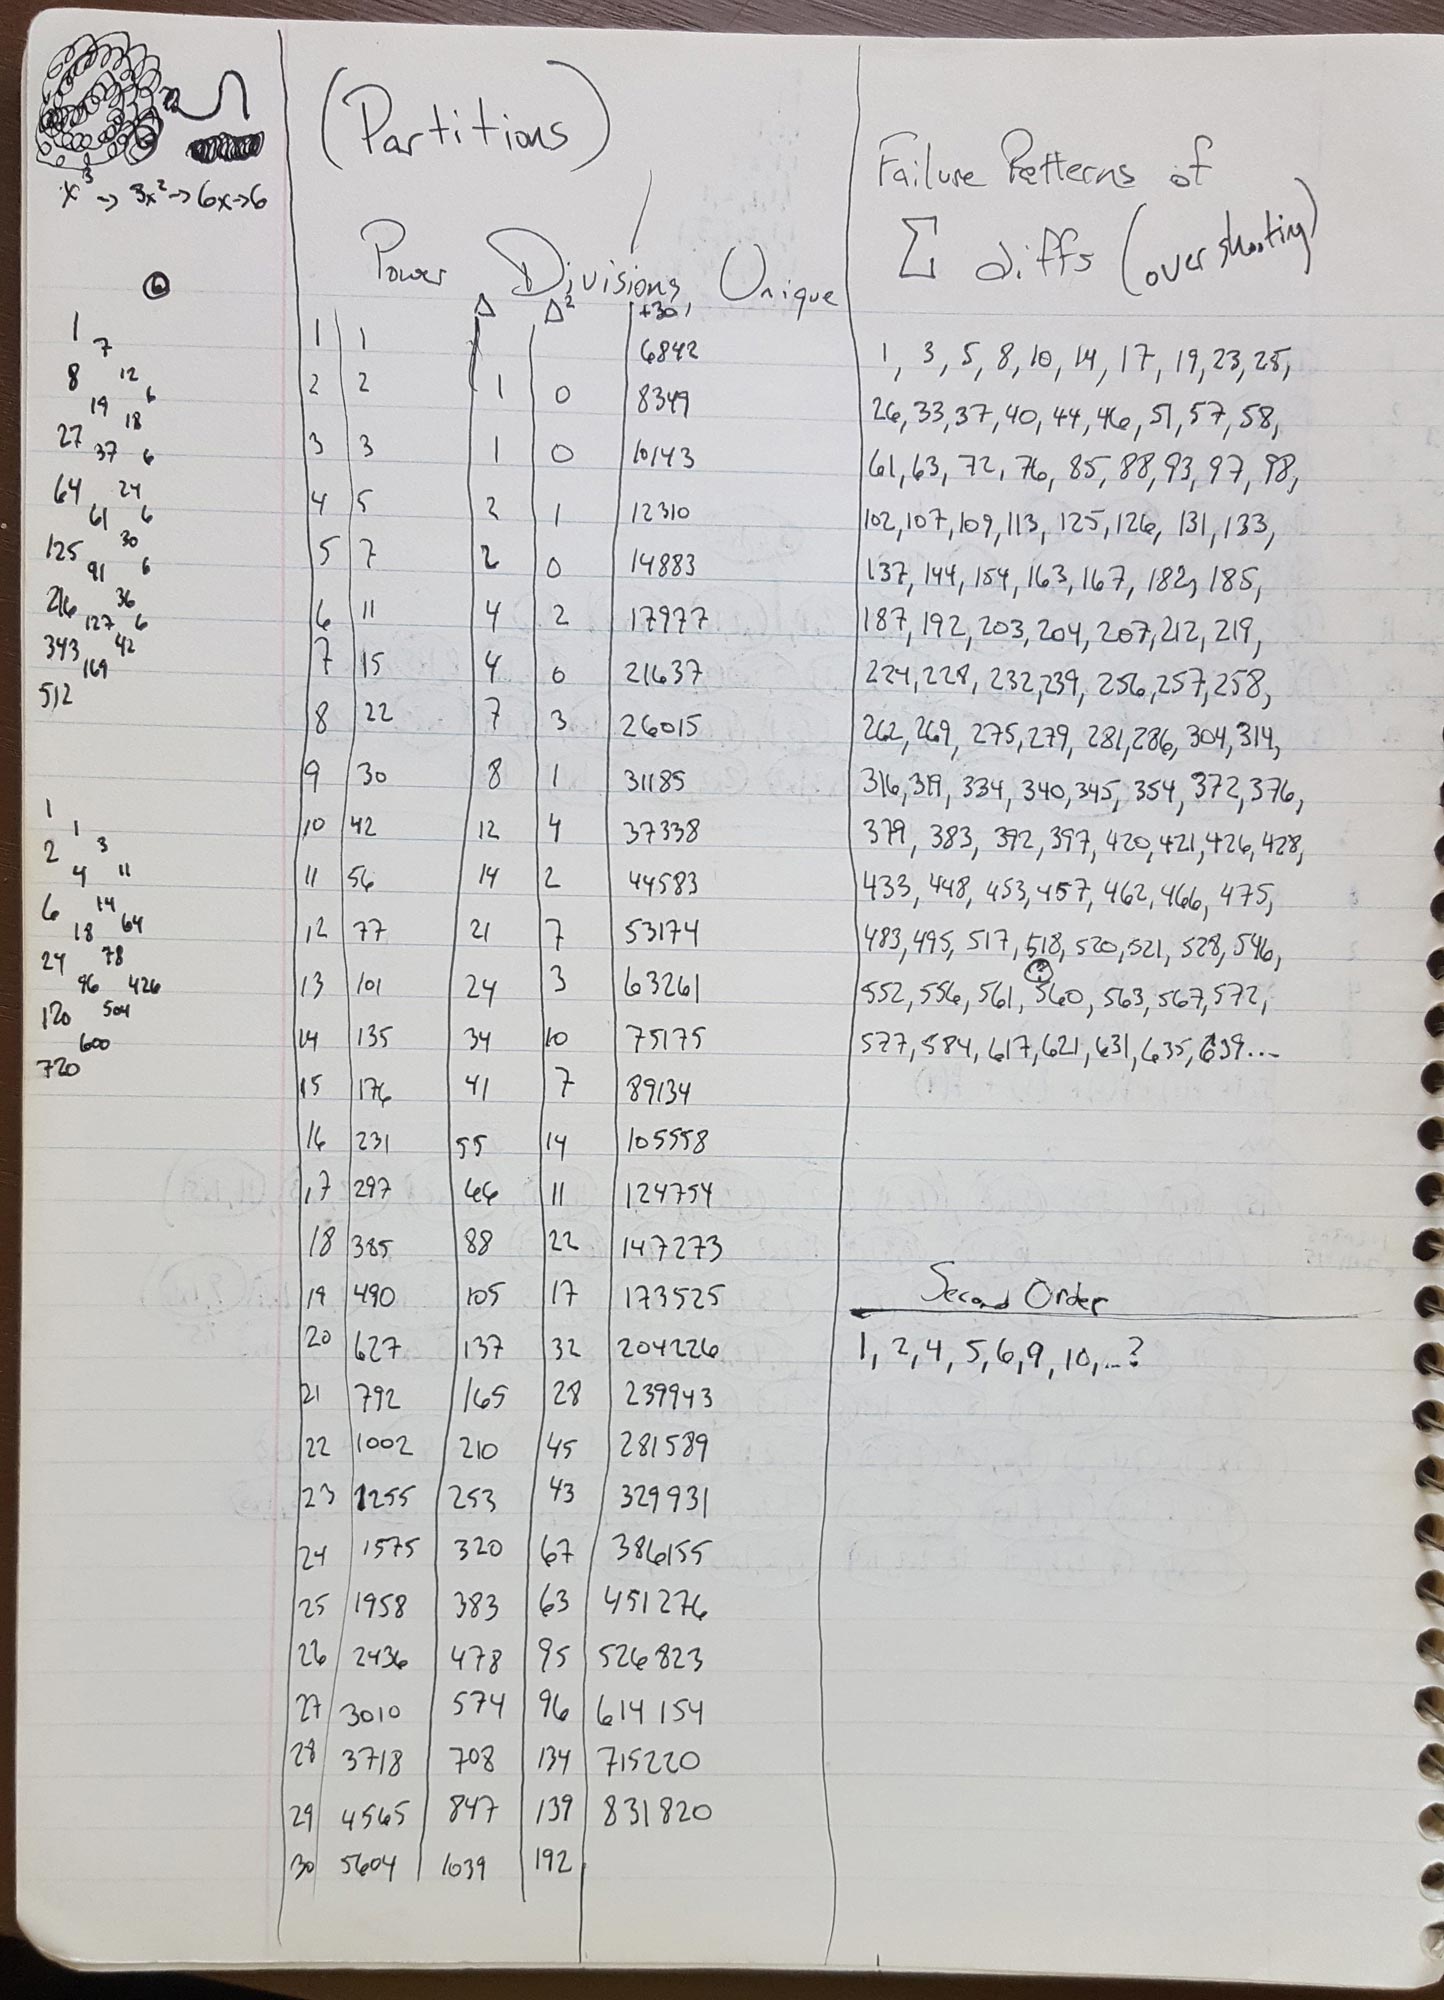 x³ -> 3x² -> 6x -> 6
6
1
7
8 12
19 6
18
27
37 6
64 24
61 6
125 30
91 6
216 36
127 6
343 42
169
512
1
1
2 3
4 11
6 14
18 64
24 78
96 426
120 504
600
720
(Partitions)
Power Divisions, Unique
Δ Δ² +30↓
1 1 6842
2 2 1 0 8349
3 3 1 0 10143
4 5 2 1 12310
5 7 2 0 14883
6 11 4 2 17977
7 15 4 0 21637
8 22 7 3 26015
9 30 8 1 31185
10 42 12 4 37338
11 56 14 2 44583
12 77 21 7 53174
13 101 24 3 63261
14 135 34 10 75175
15 176 41 7 89134
16 231 55 14 105558
17 297 66 11 124754
18 385 88 22 147273
19 490 105 17 173525
20 627 137 32 204226
21 792 165 28 239943
22 1002 210 45 281589
23 1255 253 43 329931
24 1575 320 67 386155
25 1958 383 63 451276
26 2436 478 95 526823
27 3010 574 96 614154
28 3718 708 134 715220
29 4565 847 139 831820
30 5604 1039 192
Failure Patterns of
Σ diffs (overshooting)
1, 3, 5, 8, 10, 14, 17, 19, 23, 25,
26, 33, 37, 40, 44, 46, 51, 57, 58,
61, 63, 72, 76, 85, 88, 93, 97, 98,
102, 107, 109, 113, 125, 126, 131, 133,
137, 144, 154, 163, 167, 182, 185,
187, 192, 203, 204, 207, 212, 219,
224, 228, 232, 239, 256, 257, 258,
262, 269, 275, 279, 281, 286, 304, 314,
316, 319, 334, 340, 345, 354, 372, 376,
379, 383, 392, 397, 420, 421, 426, 428,
433, 448, 453, 457, 462, 466, 475,
483, 495, 517, 518, 520, 521, 528, 546,
?
552, 556, 561, 560, 563, 567, 572,
577, 584, 617, 621, 631, 635, 639...
Second Order
1, 2, 4, 5, 6, 9, 10, ...?